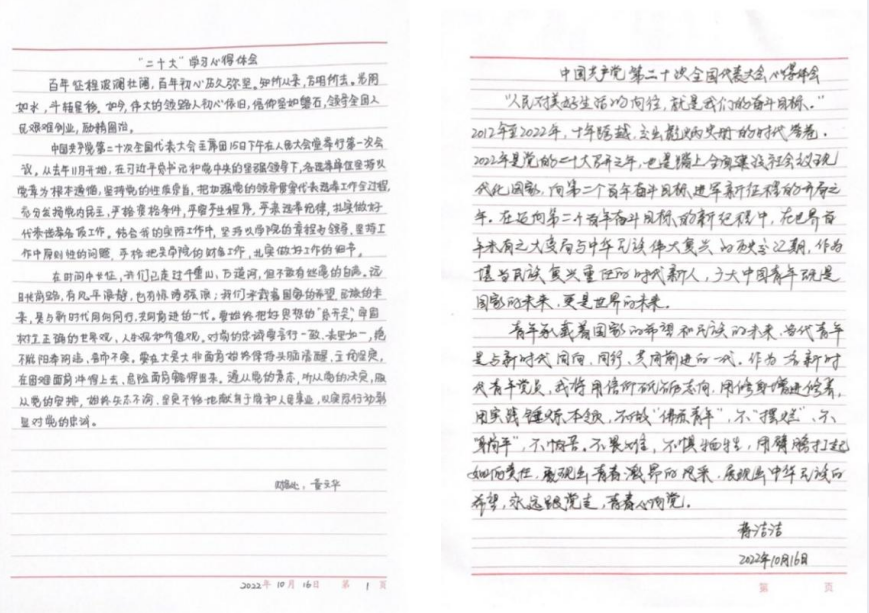 “二十大”学习心得体会
百年征程波澜壮阔，百年初心历久弥坚。知所从来，方明所去。
如水，千秋星驰，如今，伟大的领路人初心依旧，信仰坚如磐石，领导全国人
民艰难创业，励精图治。
中国共产党第二十次全国代表大会主席团15日下午在人民大会堂举行第一次会
议。从去年11月开始，在习近平总书记和党中央的坚强领导下，各选举单位坚持以
党章为根本遵循，坚持党的性质宗旨，把加强党的领导贯穿代表选举工作全过程，
充分发扬党内民主，严格资格条件，严密产生程序，严肃选举纪律，扎实做好
代表选举各项工作。结合我的实际工作中，坚持以学院的章程为领导，坚持工
作中原则性的问题，严格把关学院的财务工作，扎实做好工作的细节。
在时间中長征，我们已走过千重山，万道河，但不敢有丝毫的自满。
有风平浪静，也有惊涛骇浪；我们承载着国家的希望，民族的未
来，是与新时代同向同行、共同前进的一代。要始终把好思想的“总开关”，牢固
树立正确的世界观，人生观和价值观。对党的忠诚要言行一致、表里如一，绝
不能阳奉阴违，当面是非面前始终保持头脑清醒、立场坚定，
在困难面前冲得上去，危险面前豁得出来。遵从党的，听从党的决定，服
从党的安排，始终矢志不渝、坚贞不饱地献身于党和人民事业，以实际行动彰
显对党的忠诚。
2022年 10月 16日 第 1 页
中国共产党第二十次全国代表大会心得体会
“人民对美好生活的向往，就是我们的奋斗目标。”
2012年至2022年，十年跨越，交出彪炳史册的时代答卷。
2022年是党的二十大召开之年，也是踏上全面建设社会主义现
代化国家，向第二个百年奋斗目标进军新征程的开局之
年。在迈向第二个百年奋斗目标的新征程中，在世界百
年未有之大变局与中华民族伟大复兴的历史交汇期，作为
堪当民族复兴重任的时代新人，广大中国青年既是
国家的未来，更是世界的未来。
青年承载着国家的希望和民族的未来，当代青年
是与新时代同向、同行、共同前进的一代。作为一名新时
代青年党员，我将用信仰砥砺志向，用修身增进修养，
用实践锤炼本领，不做“佛系青年”，不“摆烂”、不
“躺平”，不怕苦、不畏难、不惧牺牲，用臂膀扛起
如山的责任，展现出青春激昂的风采，展现出中华民族的
希望，永远跟党走，青春心向党。
洁洁
2022年10月16日
第 页